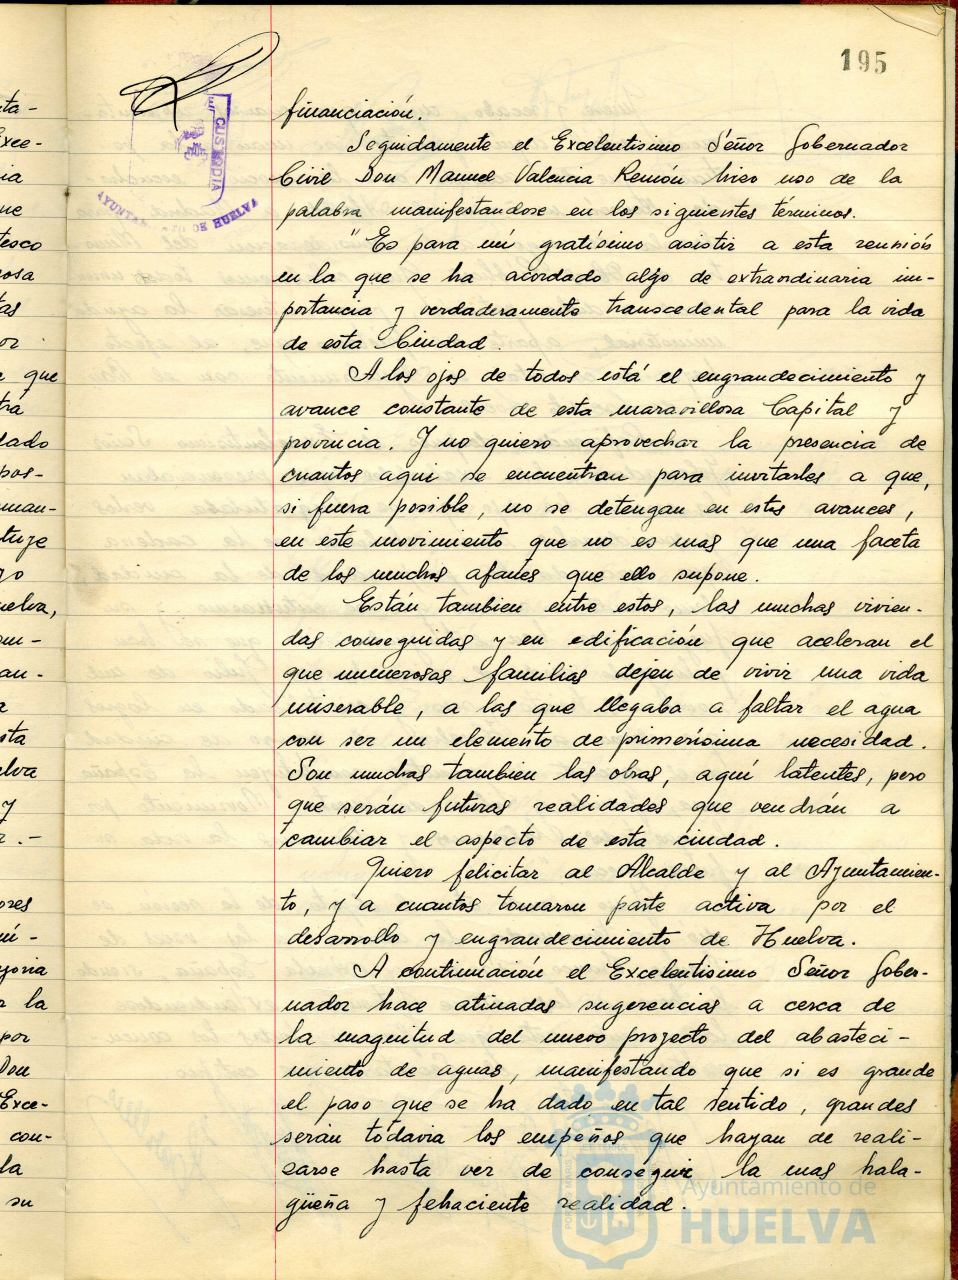 195
financiación.
Seguidamente el Excelentisimo Señor Gobernador
Civil Don Manuel Valencia Remón hizo uso de la
palabra manifestandose en los siguientes términos.
"Es para mí gratísimo asistir a esta reunión
en la que se ha acordado algo de extraordinaria im-
portancia y verdaderamente transcedental para la vida
de esta Ciudad.
A los ojos de todos está el engrandecimiento y
avance constante de esta maravillosa Capital y
provincia. Y no quiero aprovechar la presencia de
cuantos aqui se encuentran para invitarles a que,
si fuera posible, no se detengan en estos avances,
en este movimiento que no es mas que una faceta
de los muchos afanes que ello supone.
Están tambien entre estos, las muchas vivien-
das conseguidas y en edificación que aceleran el
que numerosas familias dejen de vivir una vida
miserable, a las que llegaba a faltar el agua
con ser un elemento de primerísima necesidad.
Son muchas tambien las obras, aquí latentes, pero
que serán futuras realidades que vendrán a
cambiar el aspecto de esta ciudad.
Quiero felicitar al Alcalde y al Ayuntamien-
to, y a cuantos tomaron parte activa por el
desarrollo y engrandecimiento de Huelva.
A continuación el Excelentisimo Señor Gober-
nador hace atinadas sugerencias a cerca de
la magnitud del nuevo projecto del abasteci-
miento de aguas, manifestando que si es grande
el paso que se ha dado en tal sentido, grandes
serán todavia los empeños que hayan de reali-
zarse hasta ver de conseguir la mas hala-
güeña y fehaciente realidad.
CUSTODIA
DE HUELVA
Ayuntamiento de
HUELVA